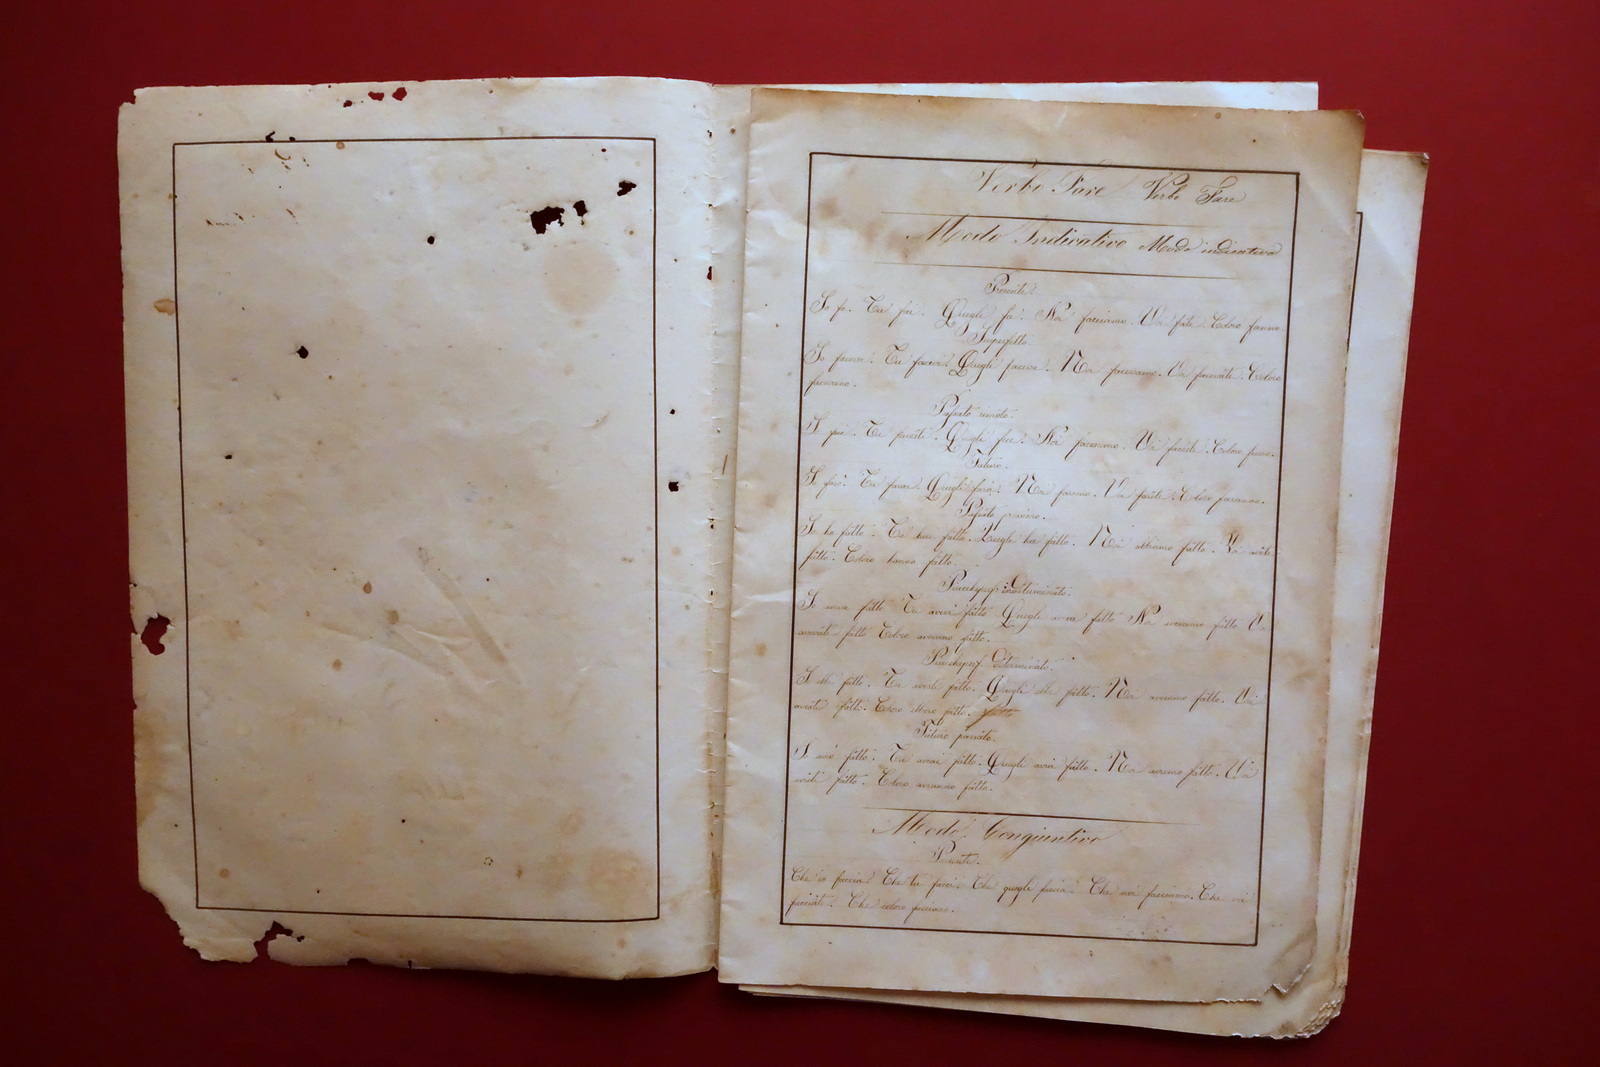 Verbo Fare Verbo Fare
Modo Indicativo Modo indicativo
Presente.
Io fo. Tu fai. Quegli fa. Noi facciamo. Voi fate. Coloro fanno.
Imperfetto
Io faceva. Tu facevi. Quegli faceva. Noi facevamo. Voi facevate. Coloro
facevano.
Passato remoto.
Io feci. Tu facesti. Quegli fece. Noi facemmo. Voi faceste. Coloro fecero.
Futuro.
Io farò. Tu farai. Quegli farà. Noi faremo. Voi farete. Coloro faranno.
Passato prossimo.
Io ho fatto. Tu hai fatto. Quegli ha fatto. Noi abbiamo fatto. Voi avete
fatto. Coloro hanno fatto.
Io aveva fatto Tu avevi fatto Quegli aveva fatto Noi avevamo fatto Voi
avevate fatto Coloro avevano fatto.
Io ebbi fatto. Tu avesti fatto. Quegli ebbe fatto. Noi avemmo fatto. Voi
fatto. Coloro ebbero fatto. fatto
Futuro passato.
Io avrò fatto. Tu avrai fatto. Quegli avrà fatto. Noi avremo fatto. Voi
fatto. Coloro avranno fatto.
Modo Congiuntivo
Presente.
Che io faccia. Che tu facci. Che quegli faccia. Che noi facciamo. Che voi
facciate. Che coloro facciano.